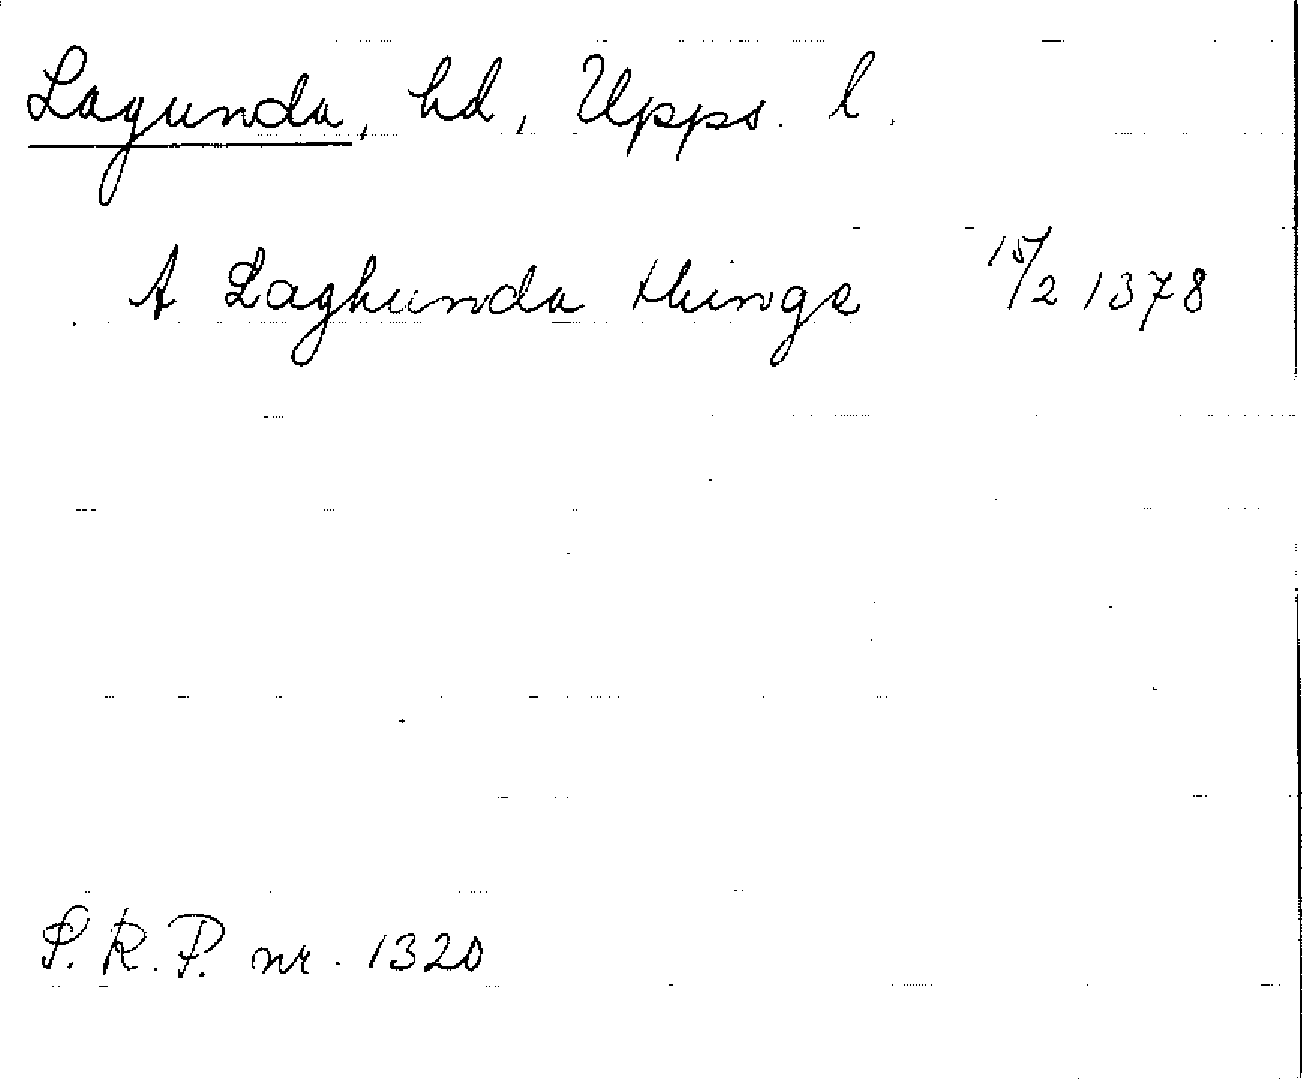 Lagunda, hd, Upps. l.
A Laghunda things 15/2 1378
S. R. P. nr. 1320